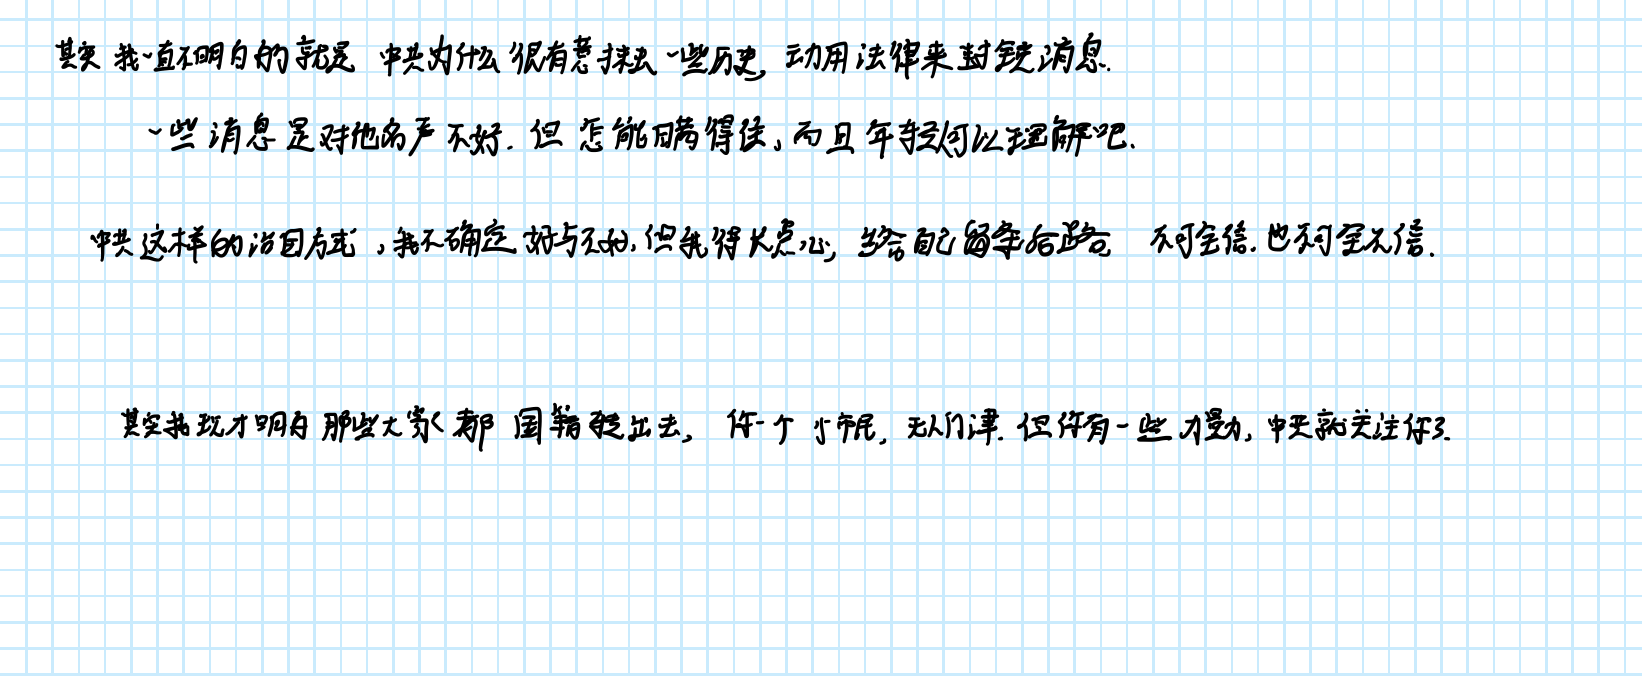 其实我一直不明白的就是 中共为什么很有意抹去一些历史, 动用法律来封锁消息.
一些消息是对他名声不好. 但怎能瞒得住, 而且年轻何以理解吧.
中共这样的治国方式, 我不确定好与不好, 但我得长点心, 给自己留条后路。 不可全信. 也不可全不信.
其实我现才明白那些大家都国籍转出去, 你一个小市民, 无人问津. 但你有一些力量力, 中共就关注你了.